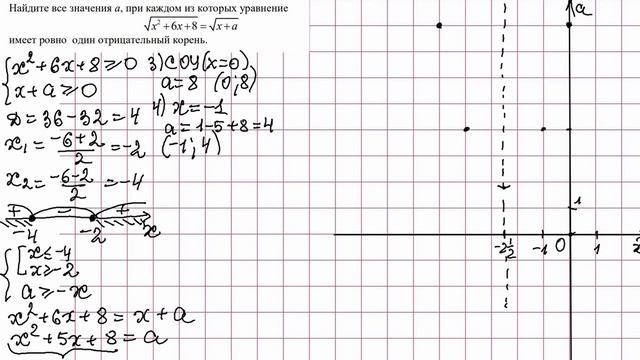 Найдите все значения a, при каждом из которых уравнение
√x² + 6x + 8 = √x + a
имеет ровно один отрицательный корень.
x² + 6x + 8 ≥ 0
x + a ≥ 0
D = 36 - 32 = 4
x₁ = (-6+2)/2 = -2
x₂ = (-6-2)/2 = -4
+ - +
-4 -2 x
x ≤ -4
x ≥ -2
a ≥ -x
x² + 6x + 8 = x + a
x² + 5x + 8 = a
3) С ОУ (x=0)
a = 8 (0; 8)
4) x = -1
a = 1 - 5 + 8 = 4
(-1; 4)
a
1
-2½ -1 0 1 2